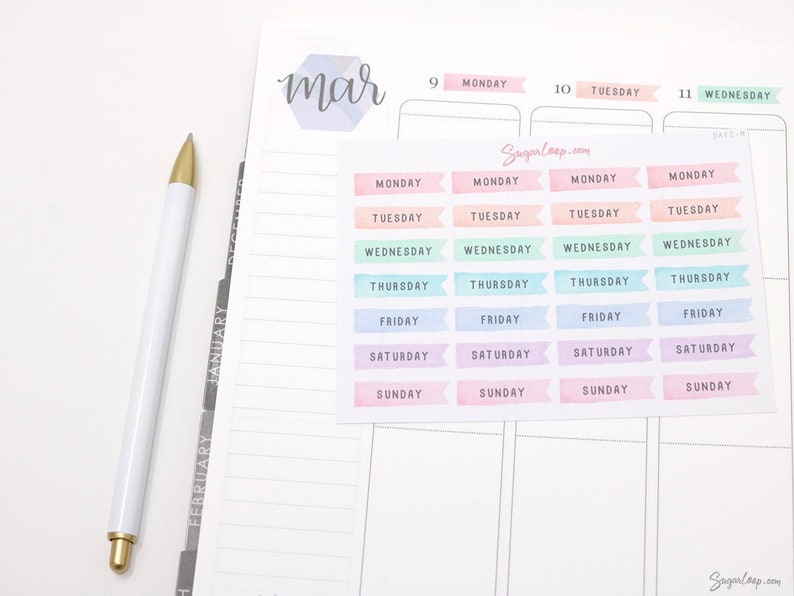 mar
9 MONDAY 10 TUESDAY 11 WEDNESDAY
DAY1-M
Sugarloop.com
MONDAY MONDAY MONDAY MONDAY
TUESDAY TUESDAY TUESDAY TUESDAY
WEDNESDAY WEDNESDAY WEDNESDAY WEDNESDAY
THURSDAY THURSDAY THURSDAY THURSDAY
FRIDAY FRIDAY FRIDAY FRIDAY
SATURDAY SATURDAY SATURDAY SATURDAY
SUNDAY SUNDAY SUNDAY SUNDAY
DECEMBER
JANUARY
FEBRUARY
Sugarloop.com